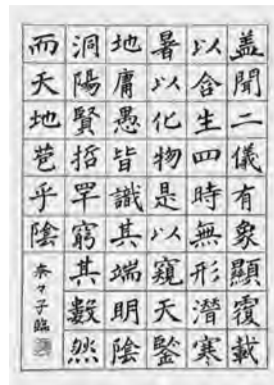 盖聞二儀有象顯覆載
以含生四時無形潛寒
暑以化物是以窺天鑒
地庸愚皆識其端明陰
洞陽賢哲罕窮其數然
而天地苞乎陰
奈々子臨